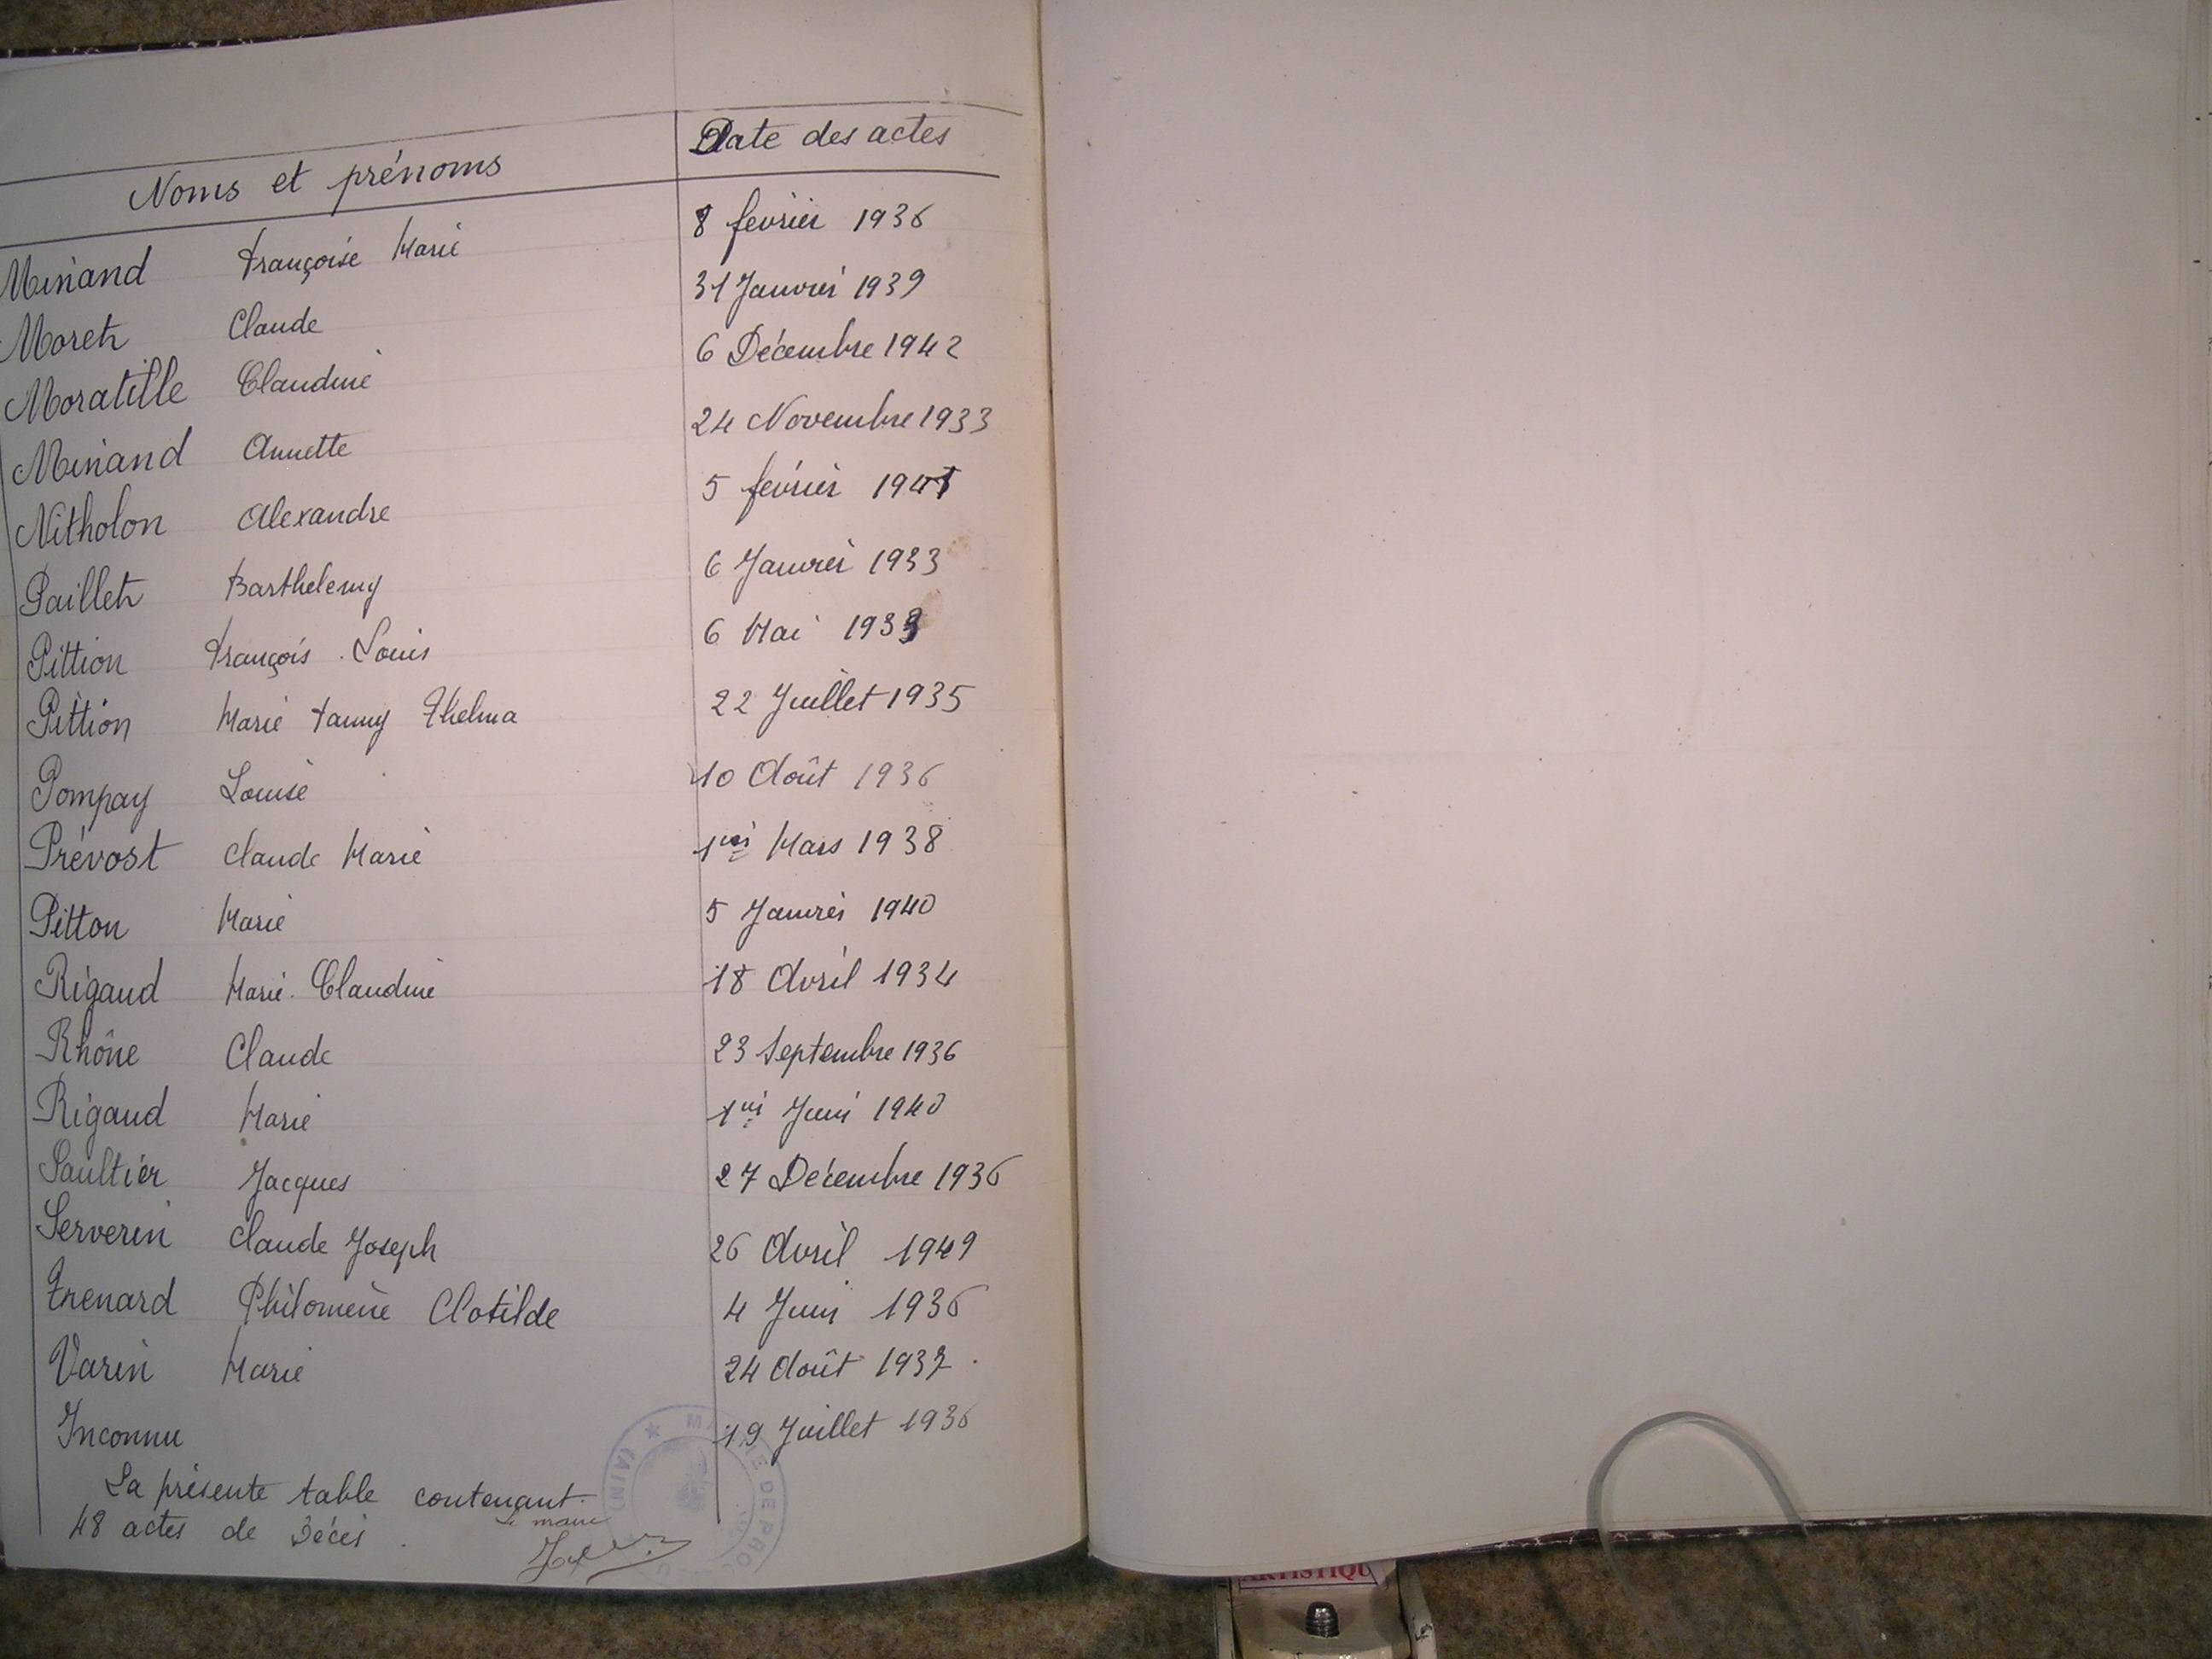 Noms et prénoms Date des actes
Miniand Françoise Marie 8 fevrier 1936
Moret Claude 31 Janvier 1939
Moratille Claudine 6 Décembre 1942
Miniand Annette 24 Novembre 1933
Nitholon Alexandre 5 février 1941
Paillet Barthelemy 6 Janvier 1933
Pittion François Louis 6 Mai 1933
Pittion Marie Fanny Thelma 22 Juillet 1935
Pompay Louise 10 Août 1936
Prévost Claude Marie 1er Mars 1938
Pitton Marie 5 Janvier 1940
Rigaud Marie Claudine 18 Avril 1934
Rhône Claude 23 Septembre 1936
Rigaud Marie 1er Juin 1940
Saultier Jacques 27 Décembre 1936
Serverin Claude Joseph 26 Avril 1949
Trenard Philomène Clotilde 4 Juin 1936
Varin Marie 24 Août 1937
Inconnu 19 Juillet 1936
La présente table contenant
48 actes de Décès.
Le maire
(AIN) DE
ARTISTIQU